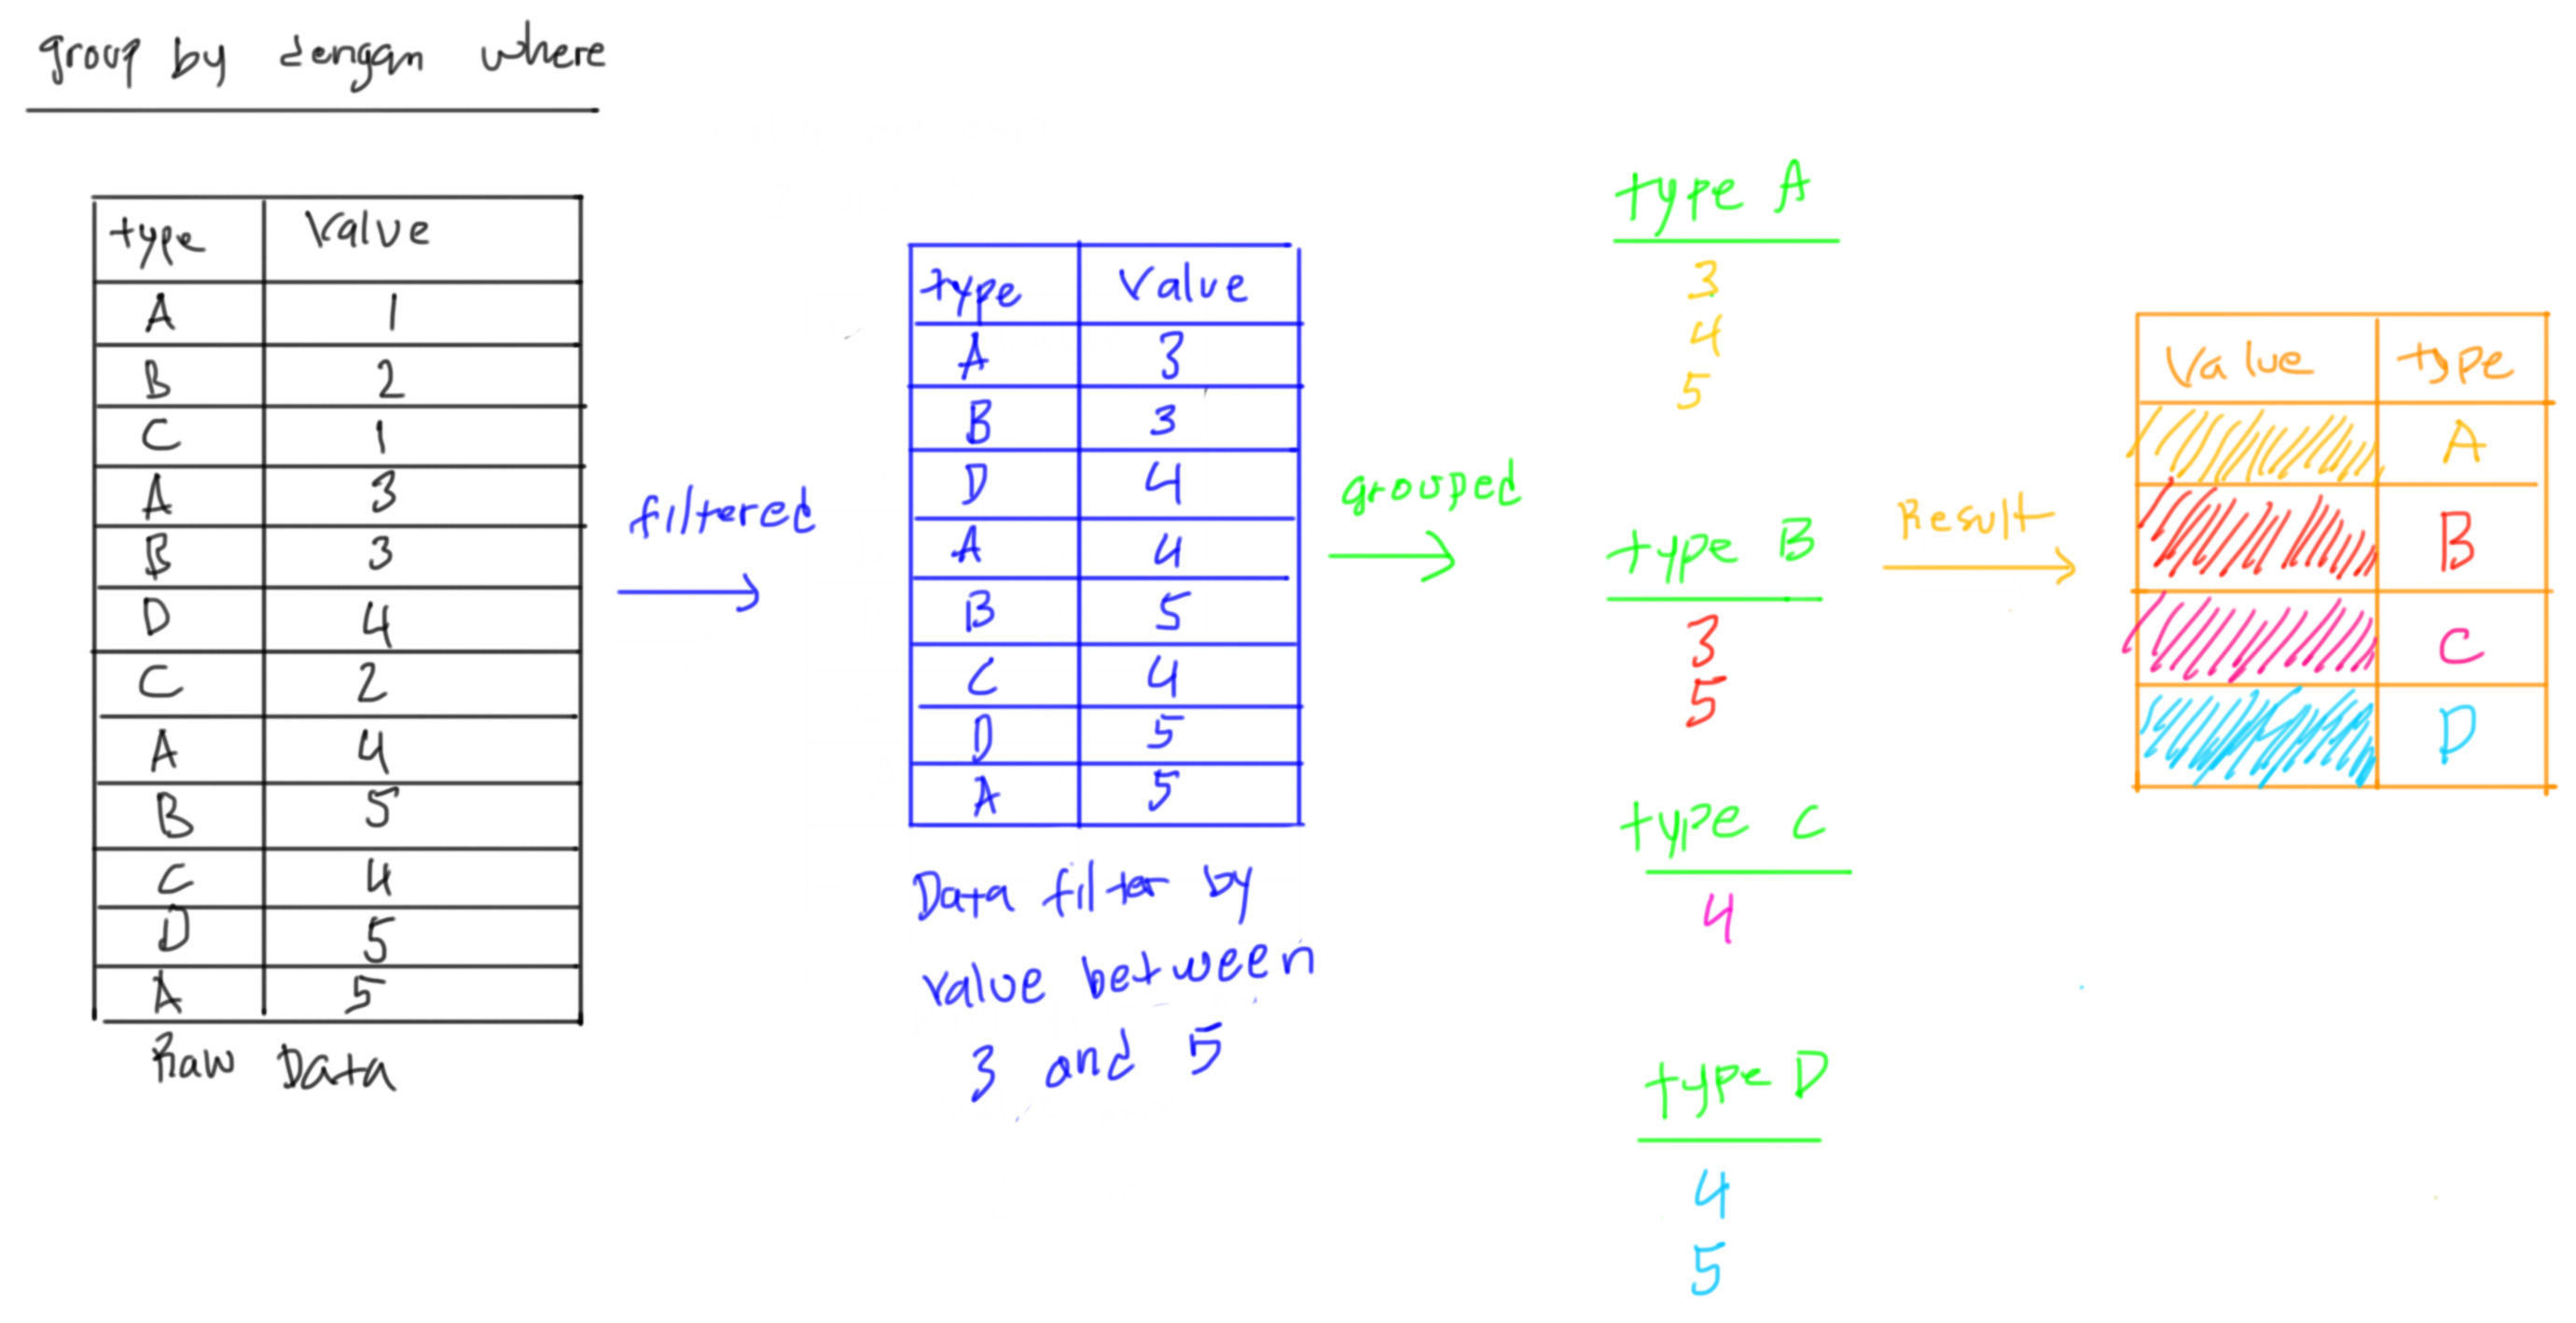 group by dengan where
type Value
A 1
B 2
C 1
A 3
B 3
D 4
C 2
A 4
B 5
C 4
D 5
A 5
Raw Data
filtered
type Value
A 3
B 3
D 4
A 4
B 5
C 4
D 5
A 5
Data filter by
value between
3 and 5
grouped
type A
3
4
5
type B
3
5
type C
4
type D
4
5
Result
Value type
A
B
C
D